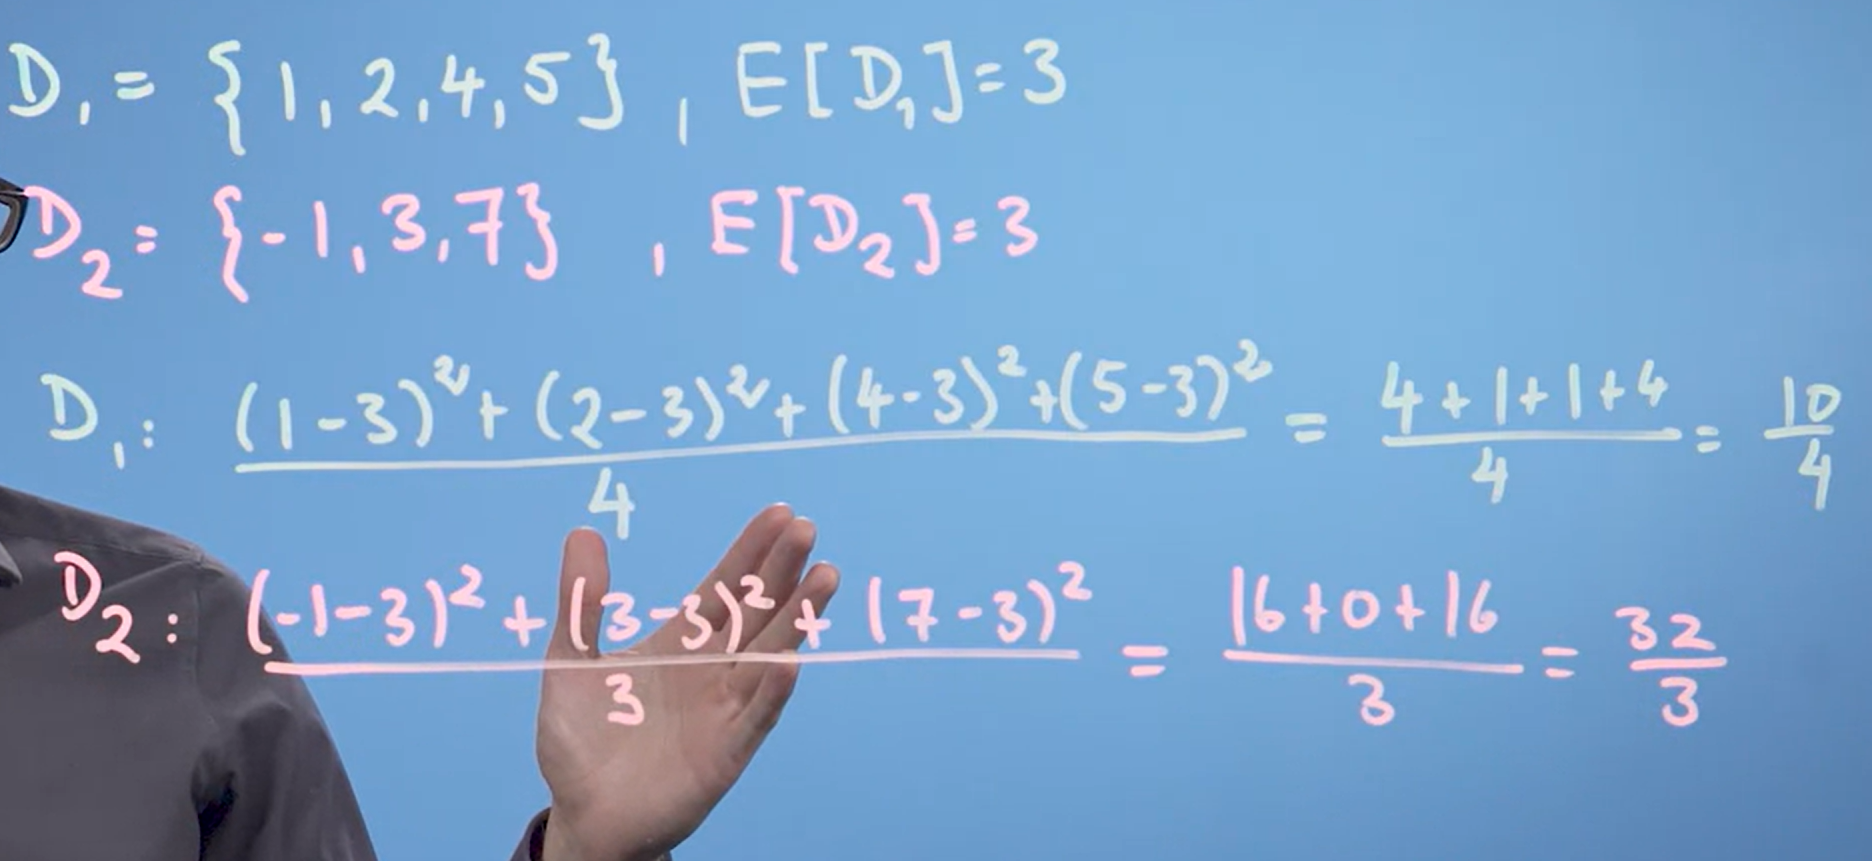 D₁ = {1, 2, 4, 5} , E[D₁] = 3
D₂ = {-1, 3, 7} , E[D₂] = 3
D₁: ((1-3)² + (2-3)² + (4-3)² + (5-3)²)/4 = (4+1+1+4)/4 = 10/4
D₂: ((-1-3)² + (3-3)² + (7-3)²)/3 = (16+0+16)/3 = 32/3